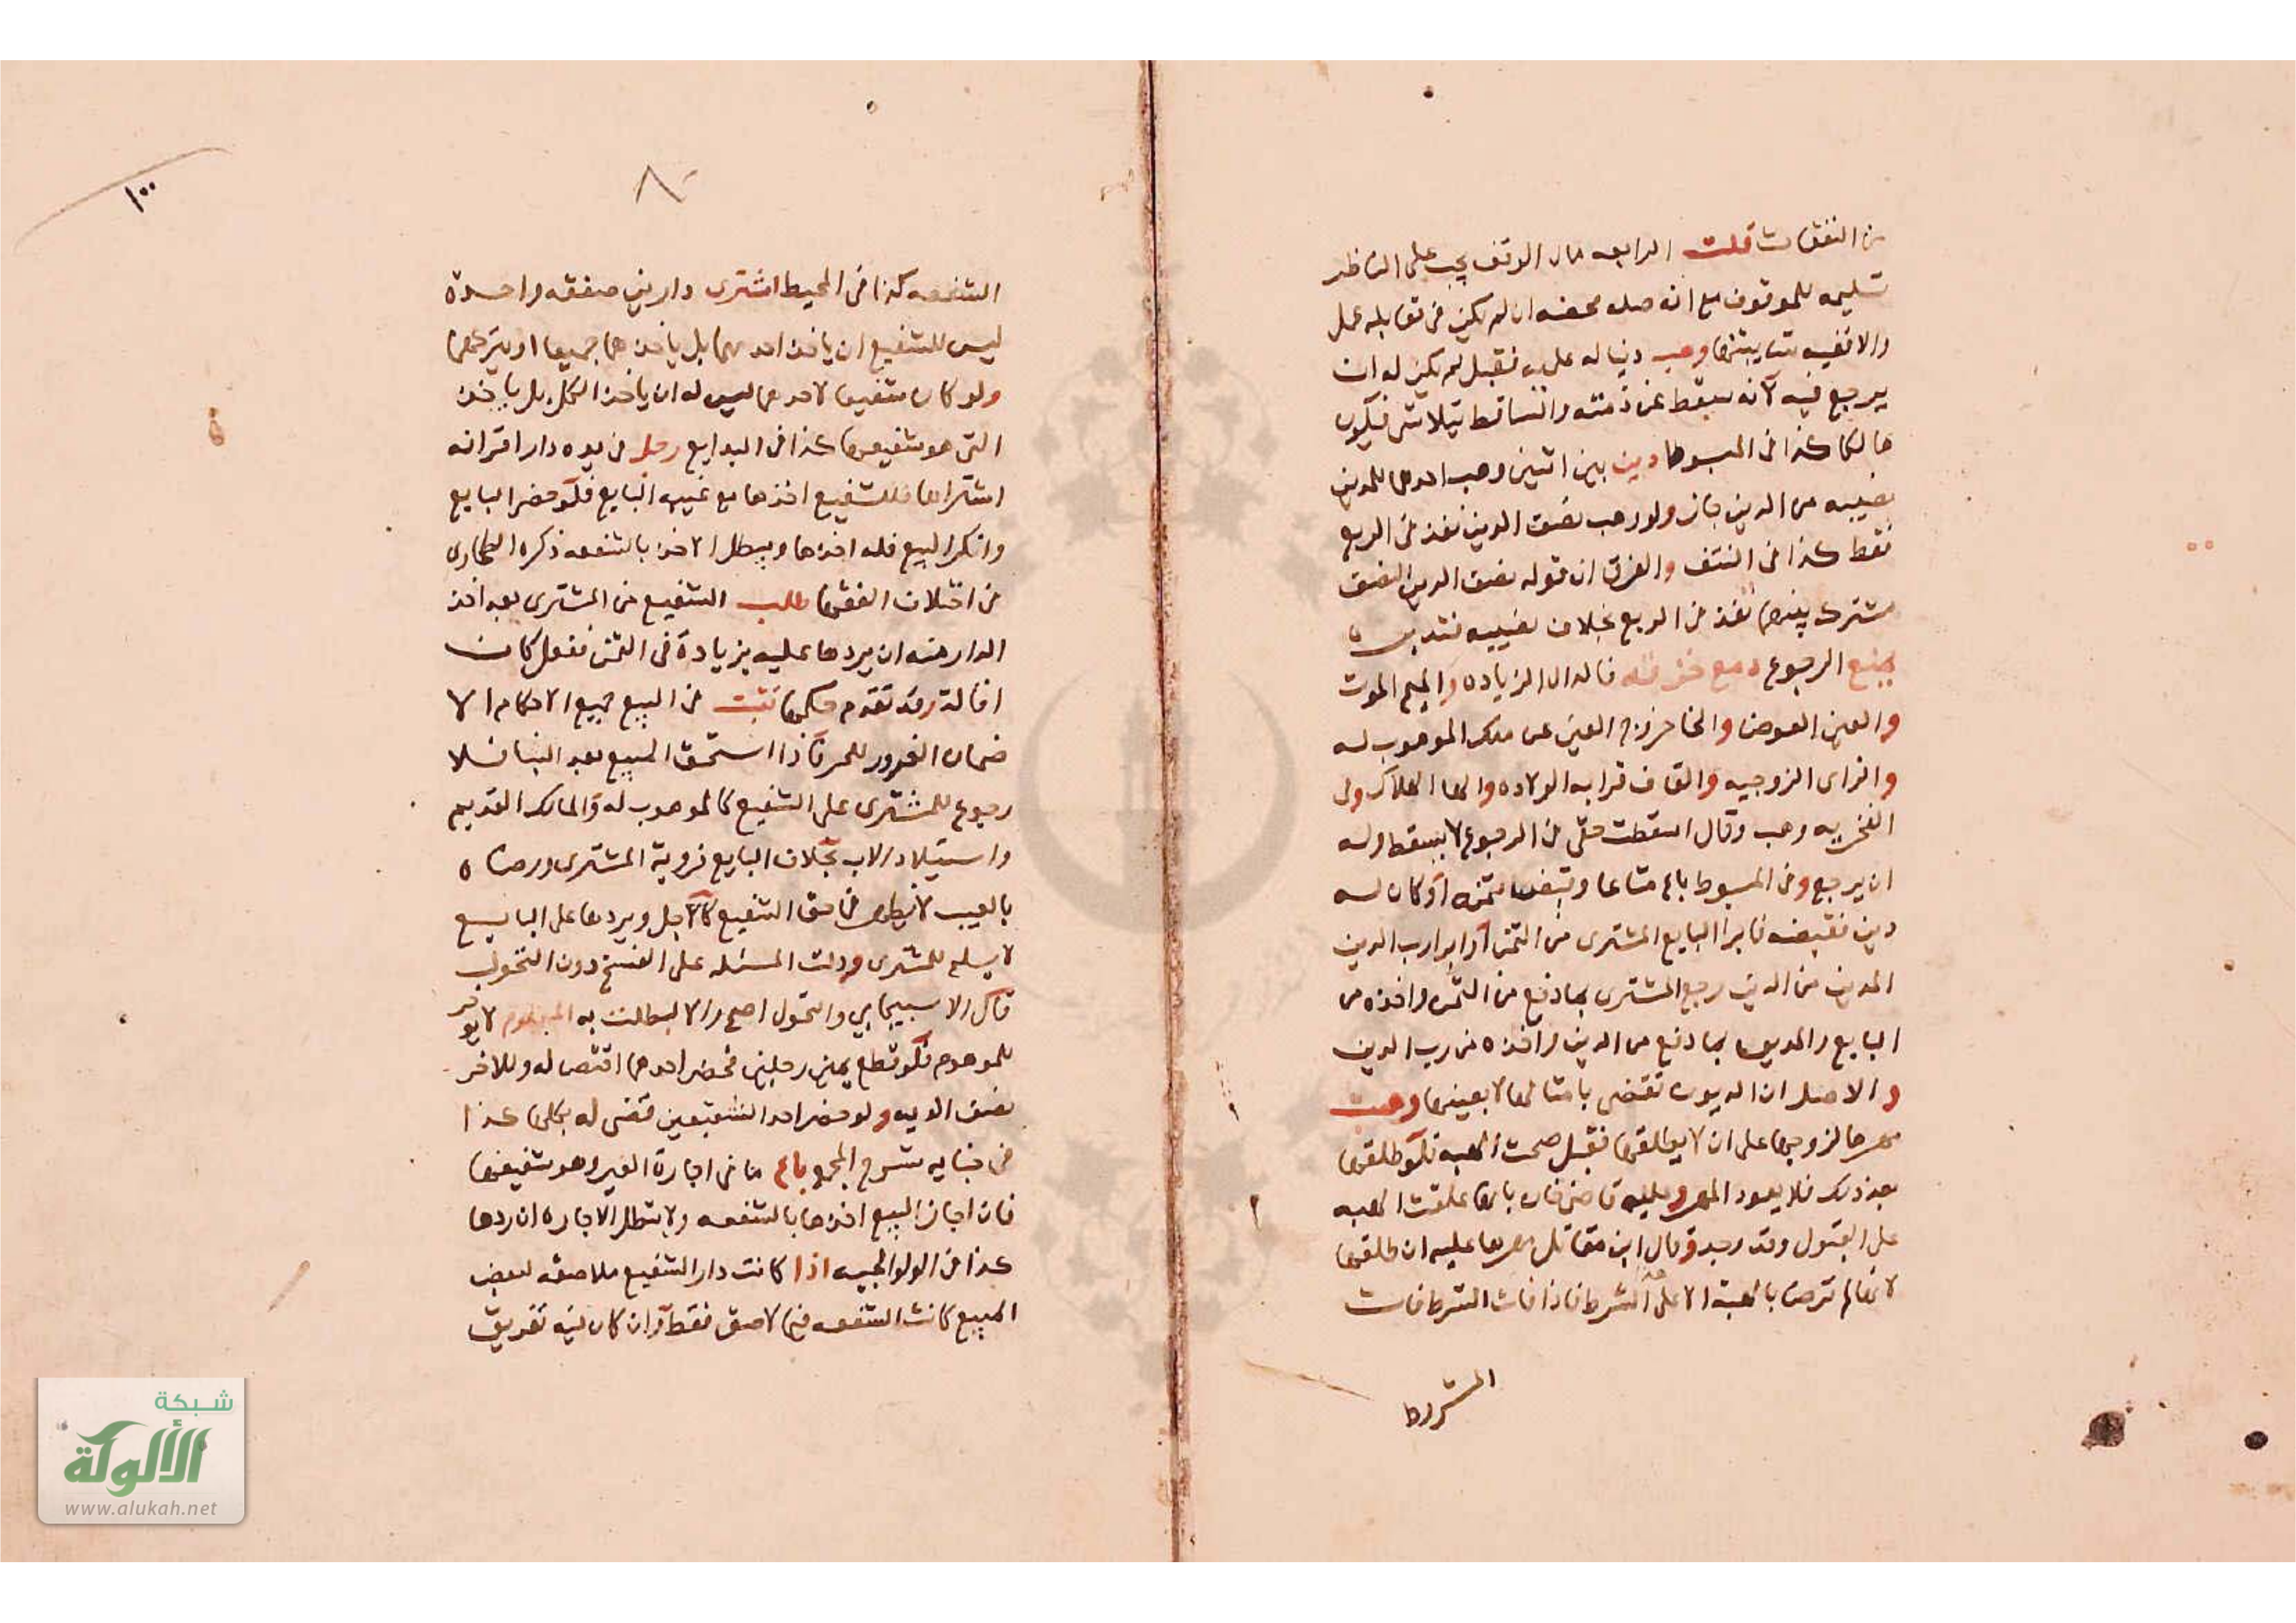 من النفقات قلت الرابعه مال الوقف يجب على الناظر
تسليمه للموقوف مع انه صله محضه ان لم يكن في مقابله عمل
والا ففيه شايبتها وهب دينا له عليه فقبل لم يكن له ان
يرجع فيه لانه سقط عن ذمته والساقط يتلاشى فيكون
هالكا كذا في المبسوط دين بين اثنين وهب احدهما للمدين
نصيبه من الدين جاز ولو وهب نصف الدين نفذ في الربع
فقط كذا في النتف والفرق ان قوله نصف الدين النصف
مشترك بينهما نفذ في الربع بخلاف نصيبه فتدبر
يمنع الرجوع دمع خزقه فالدال الزياده والميم الموت
والعين العوض والخا خروج العين عن ملك الموهوب له
والزاى الزوجيه والقاف قرابه الولاده والها الهلاك وفى
الفخريه وهب وقال اسقطت حقى في الرجوع لا يسقط وله
ان يرجع وفى المبسوط باع متاعا وقبض ثمنه او كان له
دين فقبضه فابرا البايع المشترى من الثمن او ابرا رب الدين
المدين من الدين رجع المشترى بما دفع من الثمن واخذه من
البايع والمديون بما دفع من الدين واخذه من رب الدين
والاصل ان الديون تقضى بامثالها لا بعينها وهبت
مهرها لزوجها على ان لا يطلقها فقبل صحت الهبه فلو طلقها
بعد ذلك فلا يعود المهر وعليه قاضى خان بانها علقت الهبه
على القبول وقد وجد وقال ابن مقاتل مهرها عليه ان طلقها
لانها لم ترض بالهبة الا على الشرط فاذا فات الشرط فات
المشروط
٨٠
١٠٠
الشفعه كذا في المحيط اشترى دارين صفقه واحدة
ليس للشفيع ان ياخذ احدهما بل ياخذهما جميعا او يتركهما
ولو كان شفيعا لاحدهما ليس له ان ياخذ الكل بل ياخذ
التى هو شفيعها كذا في البدايع رجل في يده دار اقر انه
اشتراها فللشفيع اخذها مع غيبه البايع فلو حضر البايع
وانكر البيع فله اخذها ويبطل الاخذ بالشفعه ذكره الطحاوى
في اختلاف الفقها طلب الشفيع من المشترى بعد اخذ
الدار منه ان يردها عليه بزيادة في الثمن ففعل كان
اقالة وقد تقدم حكمها تثبت في البيع جميع الاحكام الا
ضمان الغرور للحر فاذا استحق المبيع بعد البنا فلا
رجوع للمشترى على الشفيع كالموهوب له والمالك القديم
واستيلاد الاب بخلاف البايع فروية المشترى ورضاه
بالعيب لا يظهر في حق الشفيع كالاجل ويردها على البايع
لا يسلم للمشترى ودلت المسئله على الفسخ دون التحول
قال الاسبيجابي والتحول اصح والا لبطلت به المعلوم لا يوخر
للموهوم فلو قطع يمين رجلين فحضر احدهما اقتص له وللاخر
نصف الديه ولو حضر احد الشفيعين قضى له بكلها كذا
في جنايه شرح المجمع باع ما في اجارة الغير وهو شفيعها
فان اجاز البيع اخذها بالشفعه ولا تبطل الاجاره ان ردها
كذا في الولوالجيه اذا كانت دار الشفيع ملاصقه لبعض
المبيع كانت الشفعه فيما لاصق فقط وان كان فيه تفريق
شبكة
الألوكة
www.alukah.net